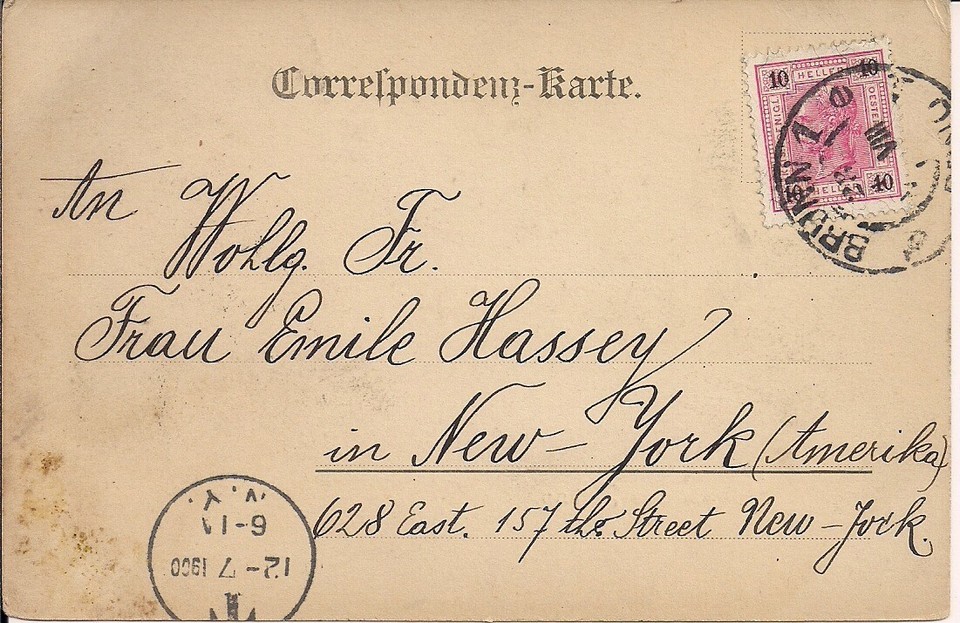 Correspondenz-Karte.
10 HELLER 10
HELLER 10
BRÜNN 1
VIII
An
Wohlg. Fr.
Frau Emilie Hassey
in New-York (Amerika)
628 East. 157 ths Street New-York.
N.Y.
6-11
12-7 1900